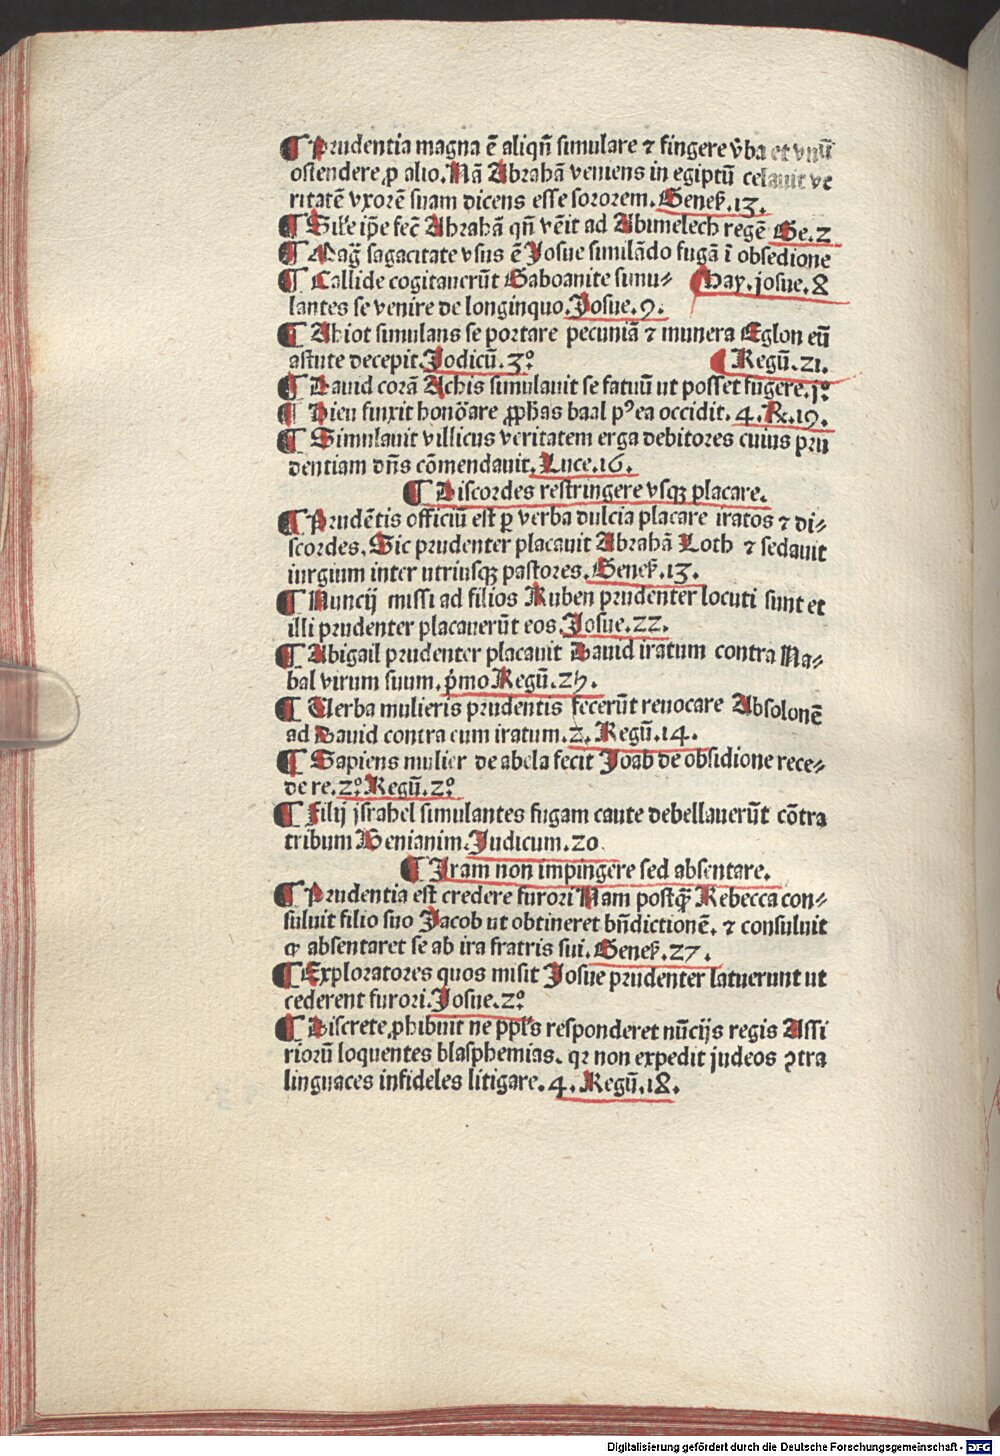 ¶ Prudentia magna ē aliqñ simulare ⁊ fingere v̄ba et vnū
ostendere ꝓ alio. Nā Abrahā veniens in egiptū celauit ve
ritatē vxorē suam dicens esse sororem. Geneſ. 13.
¶ Sił'e ip̄e fec̄ Abrahā qñ vēit ad Abimelech regē Ge. 2
¶ Mag̃ sagacitate vsus ē Josue similādo fugā ī obsedione
¶ Callide cogitauerūt Gaboanite simu⸗ ( Hay. josue. 8
lantes se venire de longinquo. Josue. 9.
¶ Abiot simulans se portare pecuniā ⁊ munera Eglon eū
astute decepit. Jodicū. 3º ( Regū. 21.
¶ Dauid corā Achis simulauit se fatuū ut posset fugere. jº
¶ Hieu finxit honōare ꝓph̄as baal pꝰ ea occidit. 4. R̄. 19.
¶ Simulauit villicus veritatem erga debitores cuius pru
dentiam dñs cōmendauit. Luce. 16.
¶ Discordes restringere vsqꝫ placare.
¶ Prudētis officiū est ꝑ verba dulcia placare iratos ⁊ di⸗
scordes. Sic prudenter placauit Abrahā Loth ⁊ sedauit
iurgium inter utriusqꝫ pastores. Geneſ. 13.
¶ Nuncij missi ad filios Ruben prudenter locuti sunt et
illi prudenter placauerūt eos. Josue. 22.
¶ Abigail prudenter placauit Dauid iratum contra Na⸗
bal virum suum. p̄mo Regū. 25.
¶ Uerba mulieris prudentis fecerūt reuocare Absolonē
ad Dauid contra eum iratum. 2. Regū. 14.
¶ Sapiens mulier de abela fecit Joab de obsidione rece⸗
de re. 2º Regū. 2º
¶ Filij jsrahel simulantes fugam caute debellauerūt cōtra
tribum Benianim. Judicum. 20
¶ Iram non impingere sed absentare.
¶ Prudentia est credere furori Nam postq̄ Rebecca con⸗
suluit filio suo Jacob ut obtineret bñdictionē. ⁊ consuluit
ꝙ absentaret se ab ira fratris sui. Geneſ. 27.
¶ Exploratores quos misit Josue prudenter latuerunt ut
cederent furori. Josue. 2º
¶ Discrete ꝓhibuit ne ppl̄s responderet nūcijs regis Assi
riorū loquentes blasphemias. qꝛ non expedit judeos ꝯtra
linguaces infideles litigare. 4. Regū. 18.
Digitalisierung gefördert durch die Deutsche Forschungsgemeinschaft - DFG